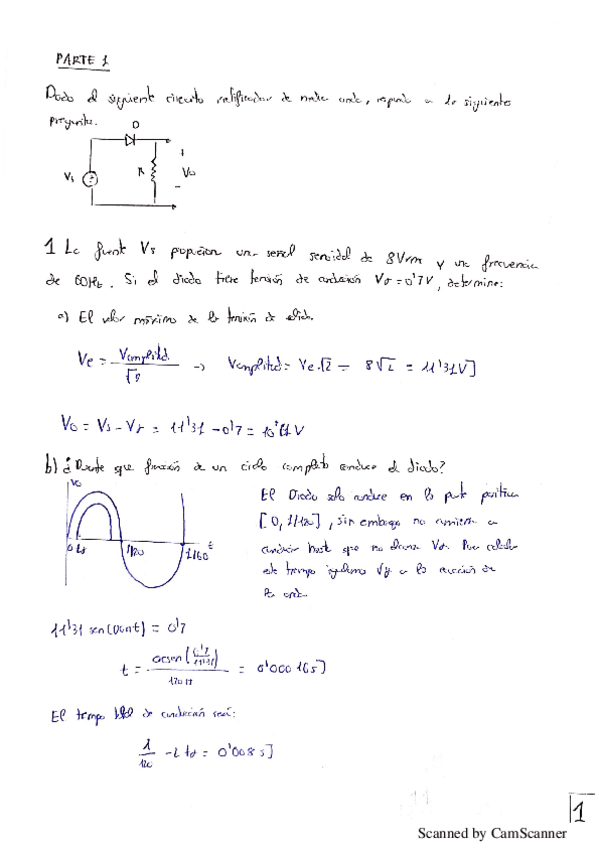 PARTE 1
Dado el siguiente circuito rectificador de media onda, responda a la siguiente
pregunta.
D
Vs R + Vo -
1 La fuente Vs proporciona una señal senoidal de 8Vrms y una frecuencia
de 60Hz. Si el diodo tiene tensión de conducción Vγ=0'7V, determine:
a) El valor máximo de la tensión de salida.
Ve = Vamplitud/√2 → Vamplitud = Ve·√2 = 8√2 = 11'31V]
Vo = Vs - Vγ = 11'31 - 0'7 = 10'61V
b) ¿Durante que fracción de un ciclo completo conduce el diodo?
Vo
0 1/120 1/60 t
El Diodo solo conduce en la parte positiva
[0, 1/120], sin embargo no comienza a
conducir hasta que no alcanza Vγ. Para calcular
este tiempo igualamos Vγ a la ecuación de
la onda.
11'31 sen(120πt) = 0'7
t = arcsen(0'7/11'31)/120π = 0'000165]
El tiempo total de conducción será:
1/120 - 2 tγ = 0'008s]
1
Scanned by CamScanner